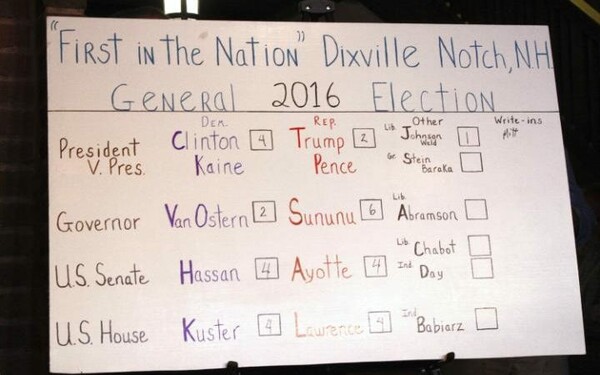 "First in the Nation" Dixville Notch, N.H.
General 2016 Election
Dem. Rep. Other Write-ins
President Clinton 4 Trump 2 Lib. Johnson 1 Mitt
V. Pres. Kaine Pence Weld
Stein
Baraka
Governor Van Ostern 2 Sununu 6 Lib. Abramson
U.S. Senate Hassan 4 Ayotte 4 Lib. Chabot
Ind. Day
U.S. House Kuster 4 Lawrence 4 Ind. Babiarz